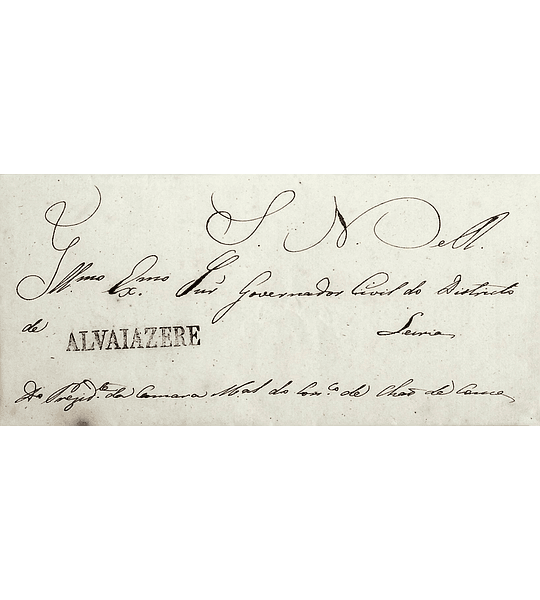 S. N. R.
Illmo Exmo Snr Governador Civil do Districto
de ALVAIAZERE Leiria
Do Prezid.te da Camara Mal do Con.co de Chaõ de Couce